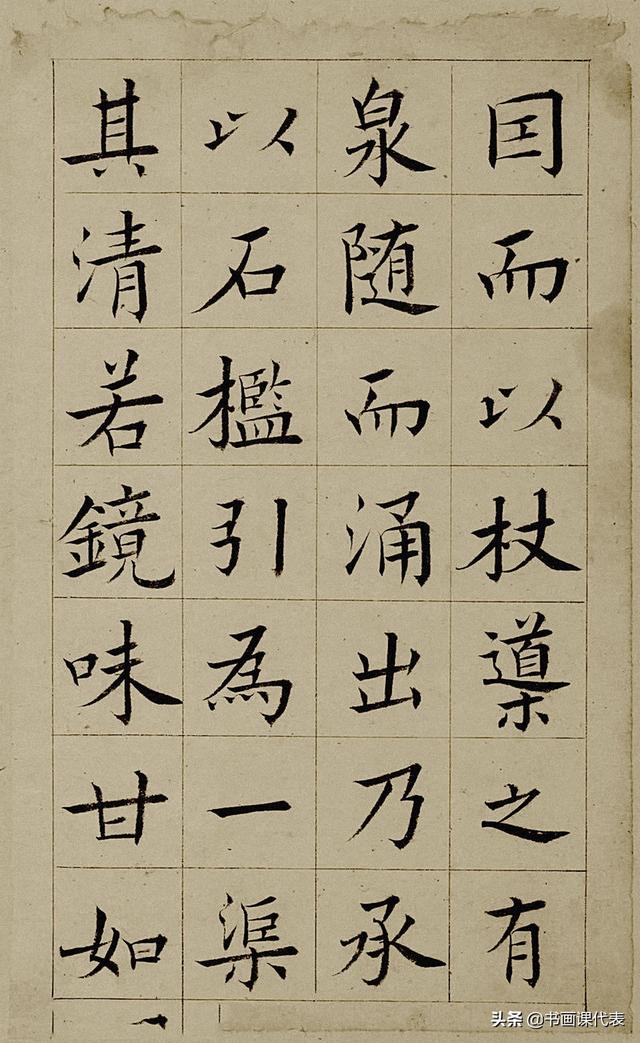 因而以杖導之有
泉随而涌出乃承
以石檻引為一渠
其清若鏡味甘如
头条 @书画课代表